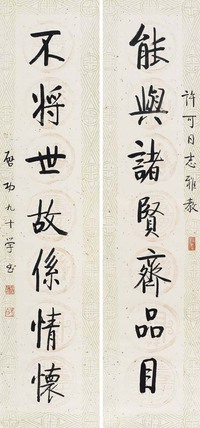 許可同志雅教
能與諸賢齊品目
不將世故係情懷
啓功九十学書